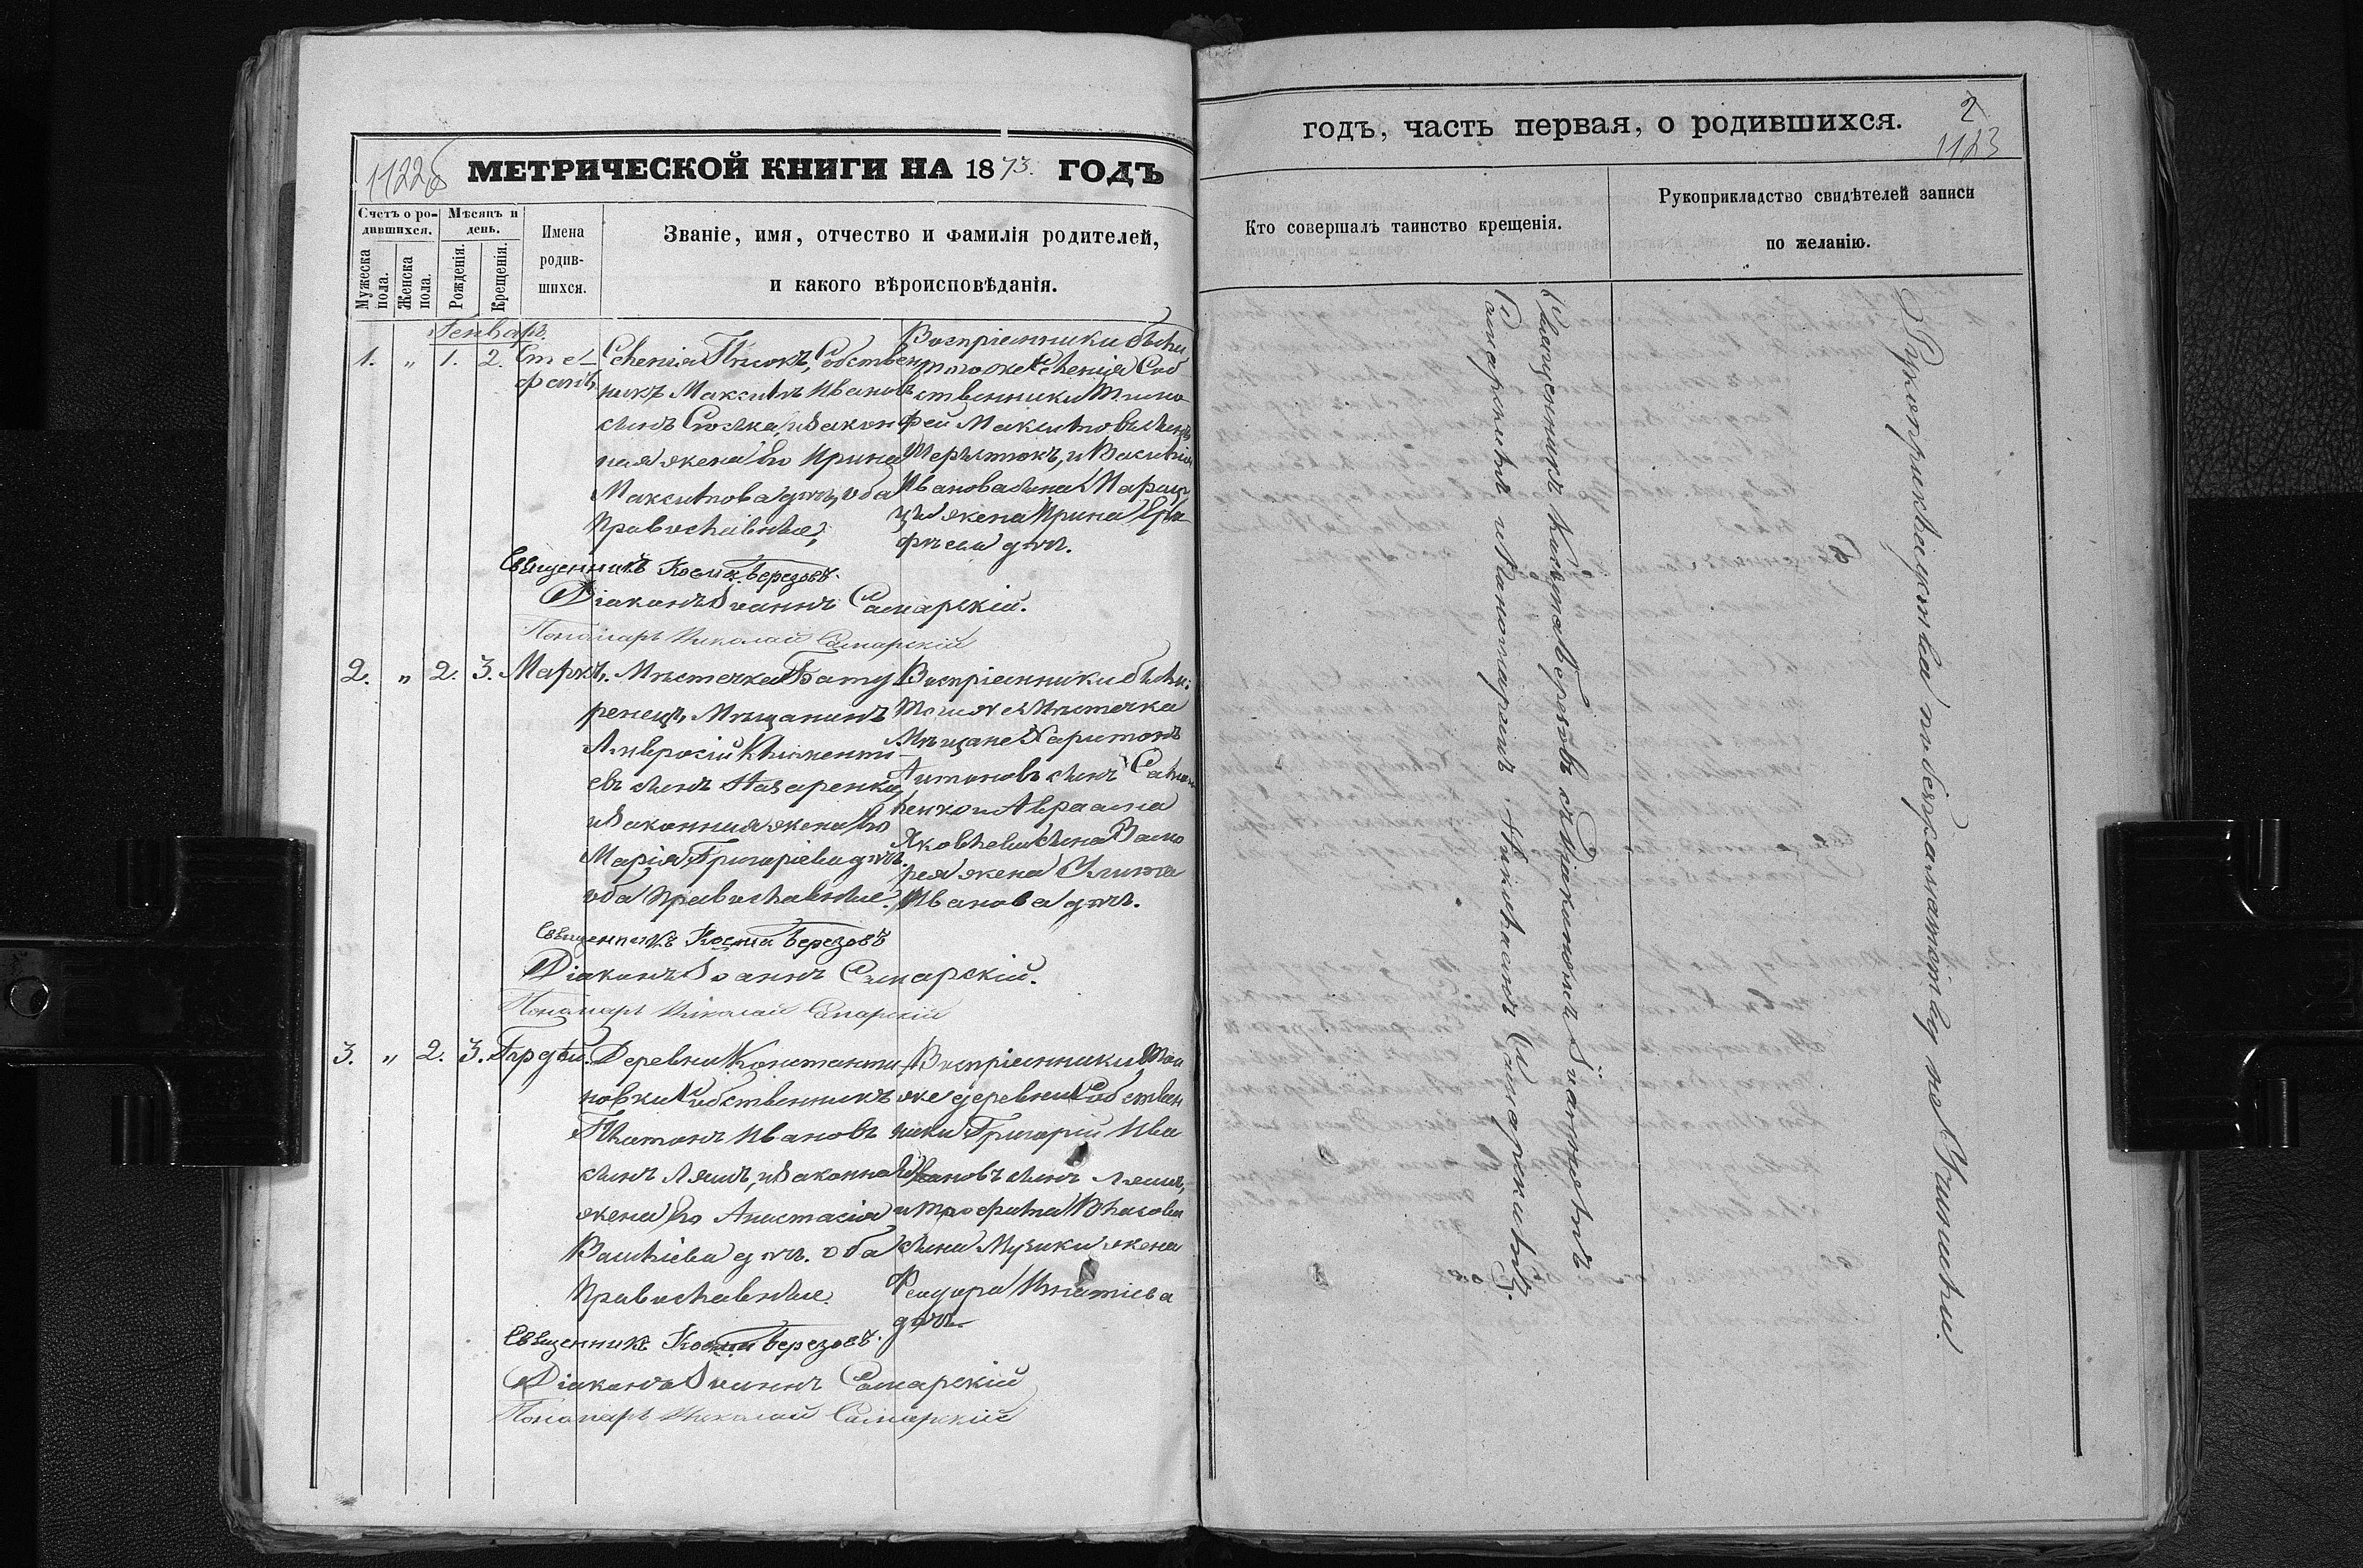 1122б
МЕТРИЧЕСКОЙ КНИГИ НА 1873. ГОДЪ
Счетъ о ро-
дившихся.
Мѣсяцъ и
день.
Мужеска
пола.
Женска
пола.
Рожденія.
Крещенія.
Имена
родив-
шихся.
Званіе, имя, отчество и фамилія родителей,
и какого вѣроисповѣданія.
Генварь.
1. " 1. 2. Сте-
фанъ
Селенія Собствен
никъ Максимъ Ивановъ
сынъ и закон
ная жена его Ирина
Максимова дчь, оба
Православные,
Воспріемники были
того же селенія Соб
ственники Тимо
фей Максимовъ сынъ
и Василія
Иванова сына
жена Ирина
дчь.
Священникъ Косма Березовъ.
Діаконъ Іоаннъ Самарскій.
Пономарь Николай Самарскій
2. " 2. 3. Маркъ.
Мѣстечка Бату
ринецъ, Мѣщанинъ
Амвросій Климентi
евъ сынъ Назаренко,
и законная жена его
Марія Григоріева дчь.
оба Православные.
Воспріемники были:
того же Мѣстечка
Мѣщане Харитонъ
сынъ
и Авраама
Яковлева сына
жена
Иванова дчь.
Священникъ Косма Березовъ
Діаконъ Іоаннъ Самарскій.
Пономарь Николай Самарскій
3. " 2. 3. Гордѣй.
Деревни Константи
новки Собственникъ
Платонъ Ивановъ
сынъ Ляшъ, и законная
жена его Анастасія
Василіева дчь. оба
Православные.
Воспріемники той
же деревни Собствен
ники Григорій Ива
новъ сынъ Ляшъ,
и Трофима Власова
сына Музыки жена
Феодора Игнатіева
дчь
Священникъ Косма Березовъ.
Діаконъ Іоаннъ Самарскій
Пономарь Николай Самарскій
годъ, часть первая, о родившихся.
2
1123
Кто совершалъ таинство крещенія.
Рукоприкладство свидѣтелей записи
по желанію.
Священникъ Косма Березовъ съ Діакономъ Іоанномъ
Самарскимъ и Пономаремъ Николаемъ Самарскимъ.
Рукоприкладства по безграмотству не чинили.